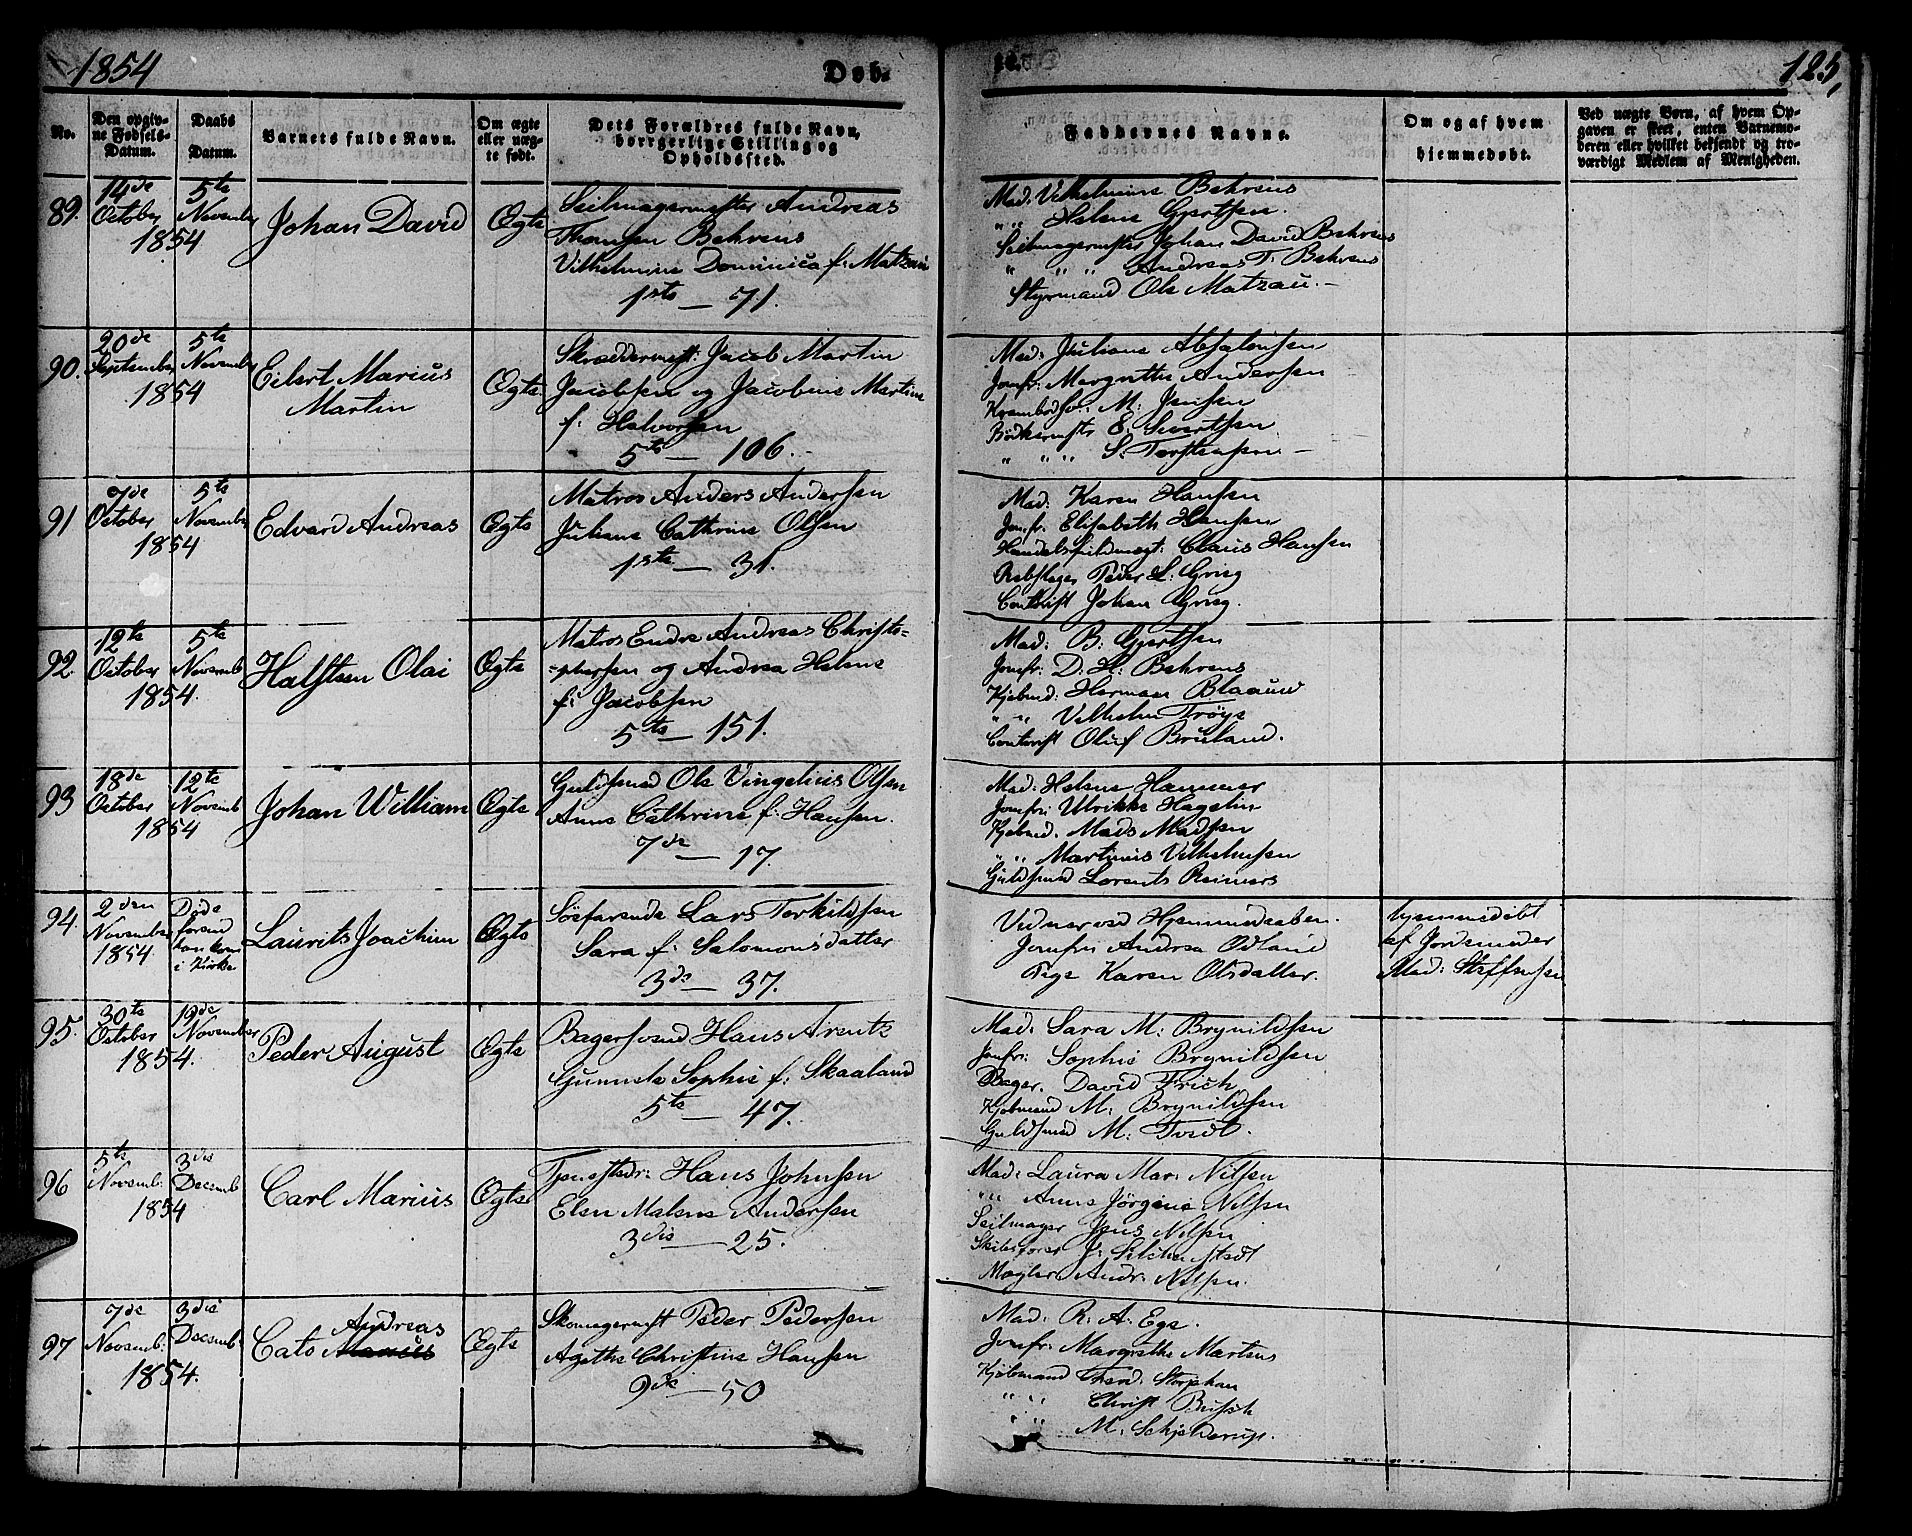 1854
Døb-
te.
125,
No.
Den opgiv-
ne Fødsels-
Datum.
Daabs
Datum.
Barnets fulde Navn.
Om ægte
eller uæg-
te født.
Dets Forældres fulde Navn,
borgerlige Stilling og
Opholdssted.
Faddernes Navne.
Om og af hvem
hjemmedøbt.
Ved uægte Børn, af hvem Op-
gaven er skeet, enten Barnemo-
deren eller hvilket bekjendt og tro-
værdigt Medlem af Menigheden.
89.
14de
October
1854
5te
November
Johan David
Ægte
Seilmagermester Andreas
Thomsen Behrens
Vilhelmine Dominica f: Matzau
1ste — 71.
Mad: Vilhelmine Behrens
" " Helene Gjertsen.
Seilmagermester Johan David Behrens
" " " Andreas T. Behrens
Styrmand Ole Matzau. —
90.
20de
September
1854
5te
November
Eilert Marius
Martin
Ægte
Skræddermest: Jacob Martin
Jacobsen og Jacobine Martine
f: Halvorsen
5te — 106.
Mad: Juliane Absalonsen
Jomfr: Margrethe Andersen
M: Jensen
Bødkermester E: Sivertsen
" " " S: Torstensen —
91
7de
October
1854
5te
November
Edvard Andreas
Ægte
Matros Anders Andersen
Juliane Cathrine Olsen
1ste — 31.
Mad: Karen Hansen
Jomfr: Elisabeth Hansen
Handelsfuldmægt: Claus Hansen
Rebslager Peder L. Grieg
Contorist Johan Grieg.
92.
12te
October
1854.
5te
Novemb
Halsteen Olai
Ægte
Matros Endre Andreas Christo-
-phersen og Andrea Helene
f: Jacobsen
5te — 151.
Mad: B: Gjertsen
Jomfr: D: H: Behrens
Kjøbmd: Herman Blaauw
" " Vilhelm Trøye
Contorist Oluf Bruland.
93
18de
October
1854
12te
Novemb
Johan William
Ægte
Guldsmed Ole Vingelius Olsen
Anne Cathrine f: Hansen.
7de — 17.
Mad: Helene Hammer
Jomfr: Ulrikke Hagelin
Kjøbmd. Mads Madsen
" " Martinus Vilhelmsen
Guldsmed Lorents Reimers
94.
2den
November
1854.
Døde
forend
han kom
i Kirke
Laurits Joachim
Ægte
Søfarende Lars Terkildsen
Sara f: Salomonsdatter
3de — 37.
Vidner ved Hjemmedaaben.
Jomfru Andrea Odland
Pige Karen Olsdatter.
hjemmedøbt
af Jordemoder
Mad: Steffensen
95.
30te
October
1854.
19de
November
Peder August
Ægte
Bagersvend Hans Arentz
Gunnele Sophie f: Skaaland
5te — 47.
Mad. Sara M: Brynildsen
Jomfr: Sophie Brynildsen
Bager. David Frich
Kjøbmand M: Brynildsen
Guldsmed M: Tvedt.
96
5te
Novemb:
1854
3die
Decemb
Carl Marius
Ægte
Tjenestedr: Hans Johnsen
Elen Malene Andersen
3die — 25.
Mad: Laura Mar: Nilsen
" " Anne Jörgine Nilsen
Seilmager Jens Nilsen
Mægler Andr: Nilsen.
97
7de
Novemb:
1854.
3die
Decemb:
Andreas
Cato Marius
Ægte
Skomagermest Peder Pedersen
Agethe Christine Hansen
9de — 50
Mad. R. A. Ege.
Jomfr: Margrethe Martens
Kjøbmand Chrod: Stephan
" " Christ Busch
" " M: Schjelderup.